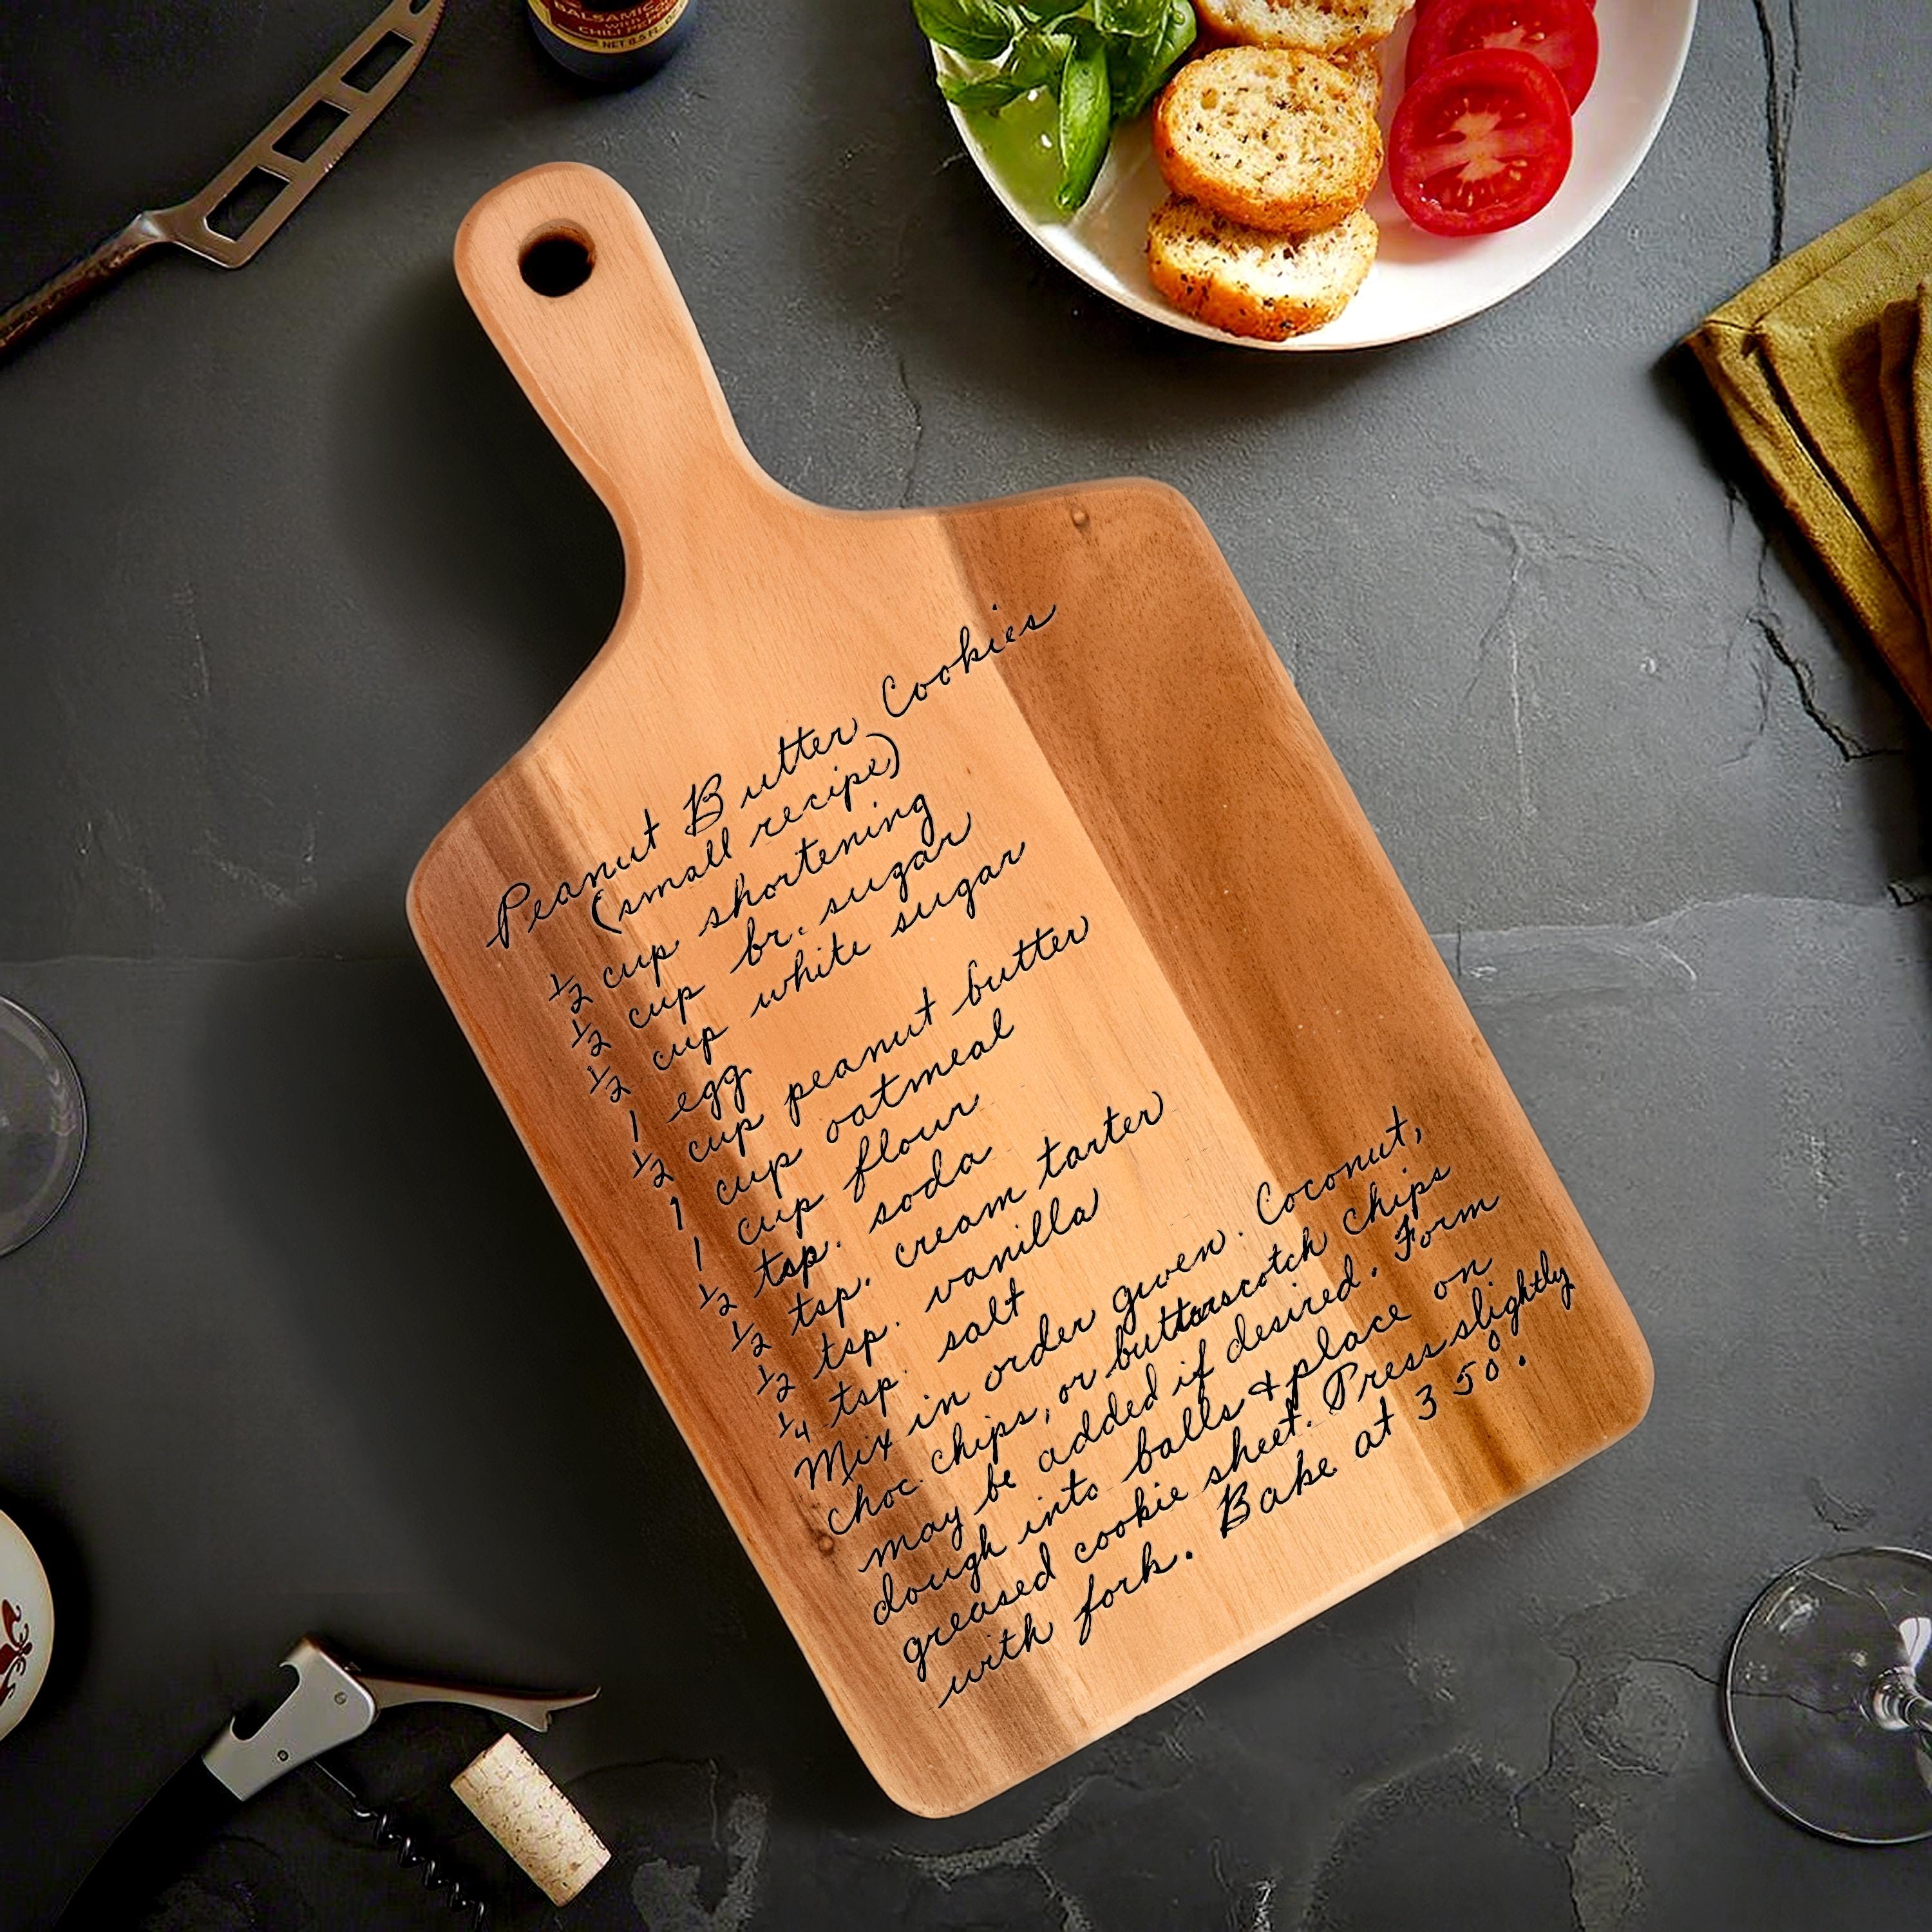 BALSAMIC
WITH
CHILI
NET 8.5 FL
Peanut Butter Cookies
(small recipe)
1/2 cup shortening
1/2 cup br. sugar
1/2 cup white sugar
1 egg
1/2 cup peanut butter
1 cup oatmeal
1 cup flour
1/2 tsp. soda
1/2 tsp. cream tarter
1/2 tsp. vanilla
1/4 tsp. salt
Mix in order given. Coconut,
choc. chips, or butterscotch chips
may be added if desired. Form
dough into balls & place on
greased cookie sheet. Press slightly
with fork. Bake at 350°.